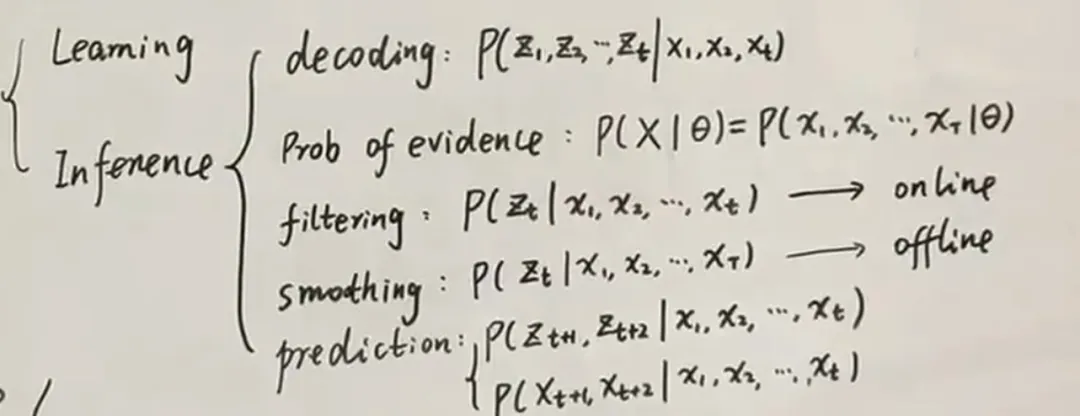 Learning
decoding: P(z₁, z₂, ..., z_t | x₁, x₂, x_t)
Inference
Prob of evidence: P(X | θ) = P(x₁, x₂, ..., x_T | θ)
filtering: P(z_t | x₁, x₂, ..., x_t) → online
smothing: P(z_t | x₁, x₂, ..., x_T) → offline
prediction: P(z_{t+1}, z_{t+2} | x₁, x₂, ..., x_t)
P(x_{t+1}, x_{t+2} | x₁, x₂, ..., x_t)